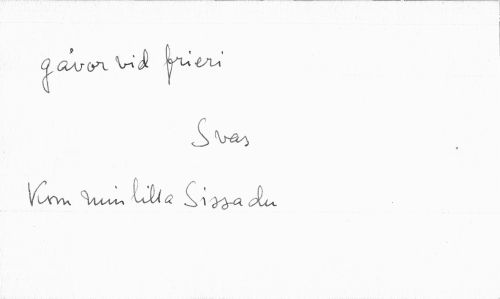 gåvor vid frieri
Svas
Kom min lilla Sissa du